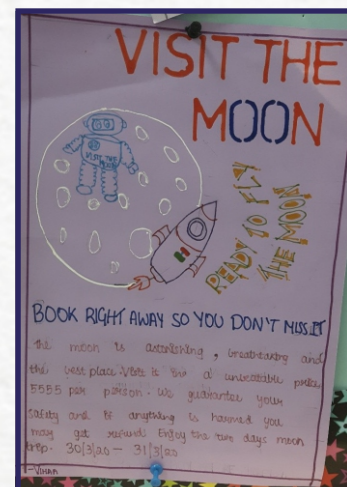 VISIT THE
MOON
VISIT THE
MOON
READY TO FLY
THE MOON
BOOK RIGHT AWAY SO YOU DON'T MISS IT
the moon is astonishing, breathtaking and
the best place. Visit it for a unbeatable price
5555 per person. We guarantee your
safety and if anything is harmed you
may get refund. Enjoy the two days moon
trip. 30/3/20 - 31/3/20
-VIHAA